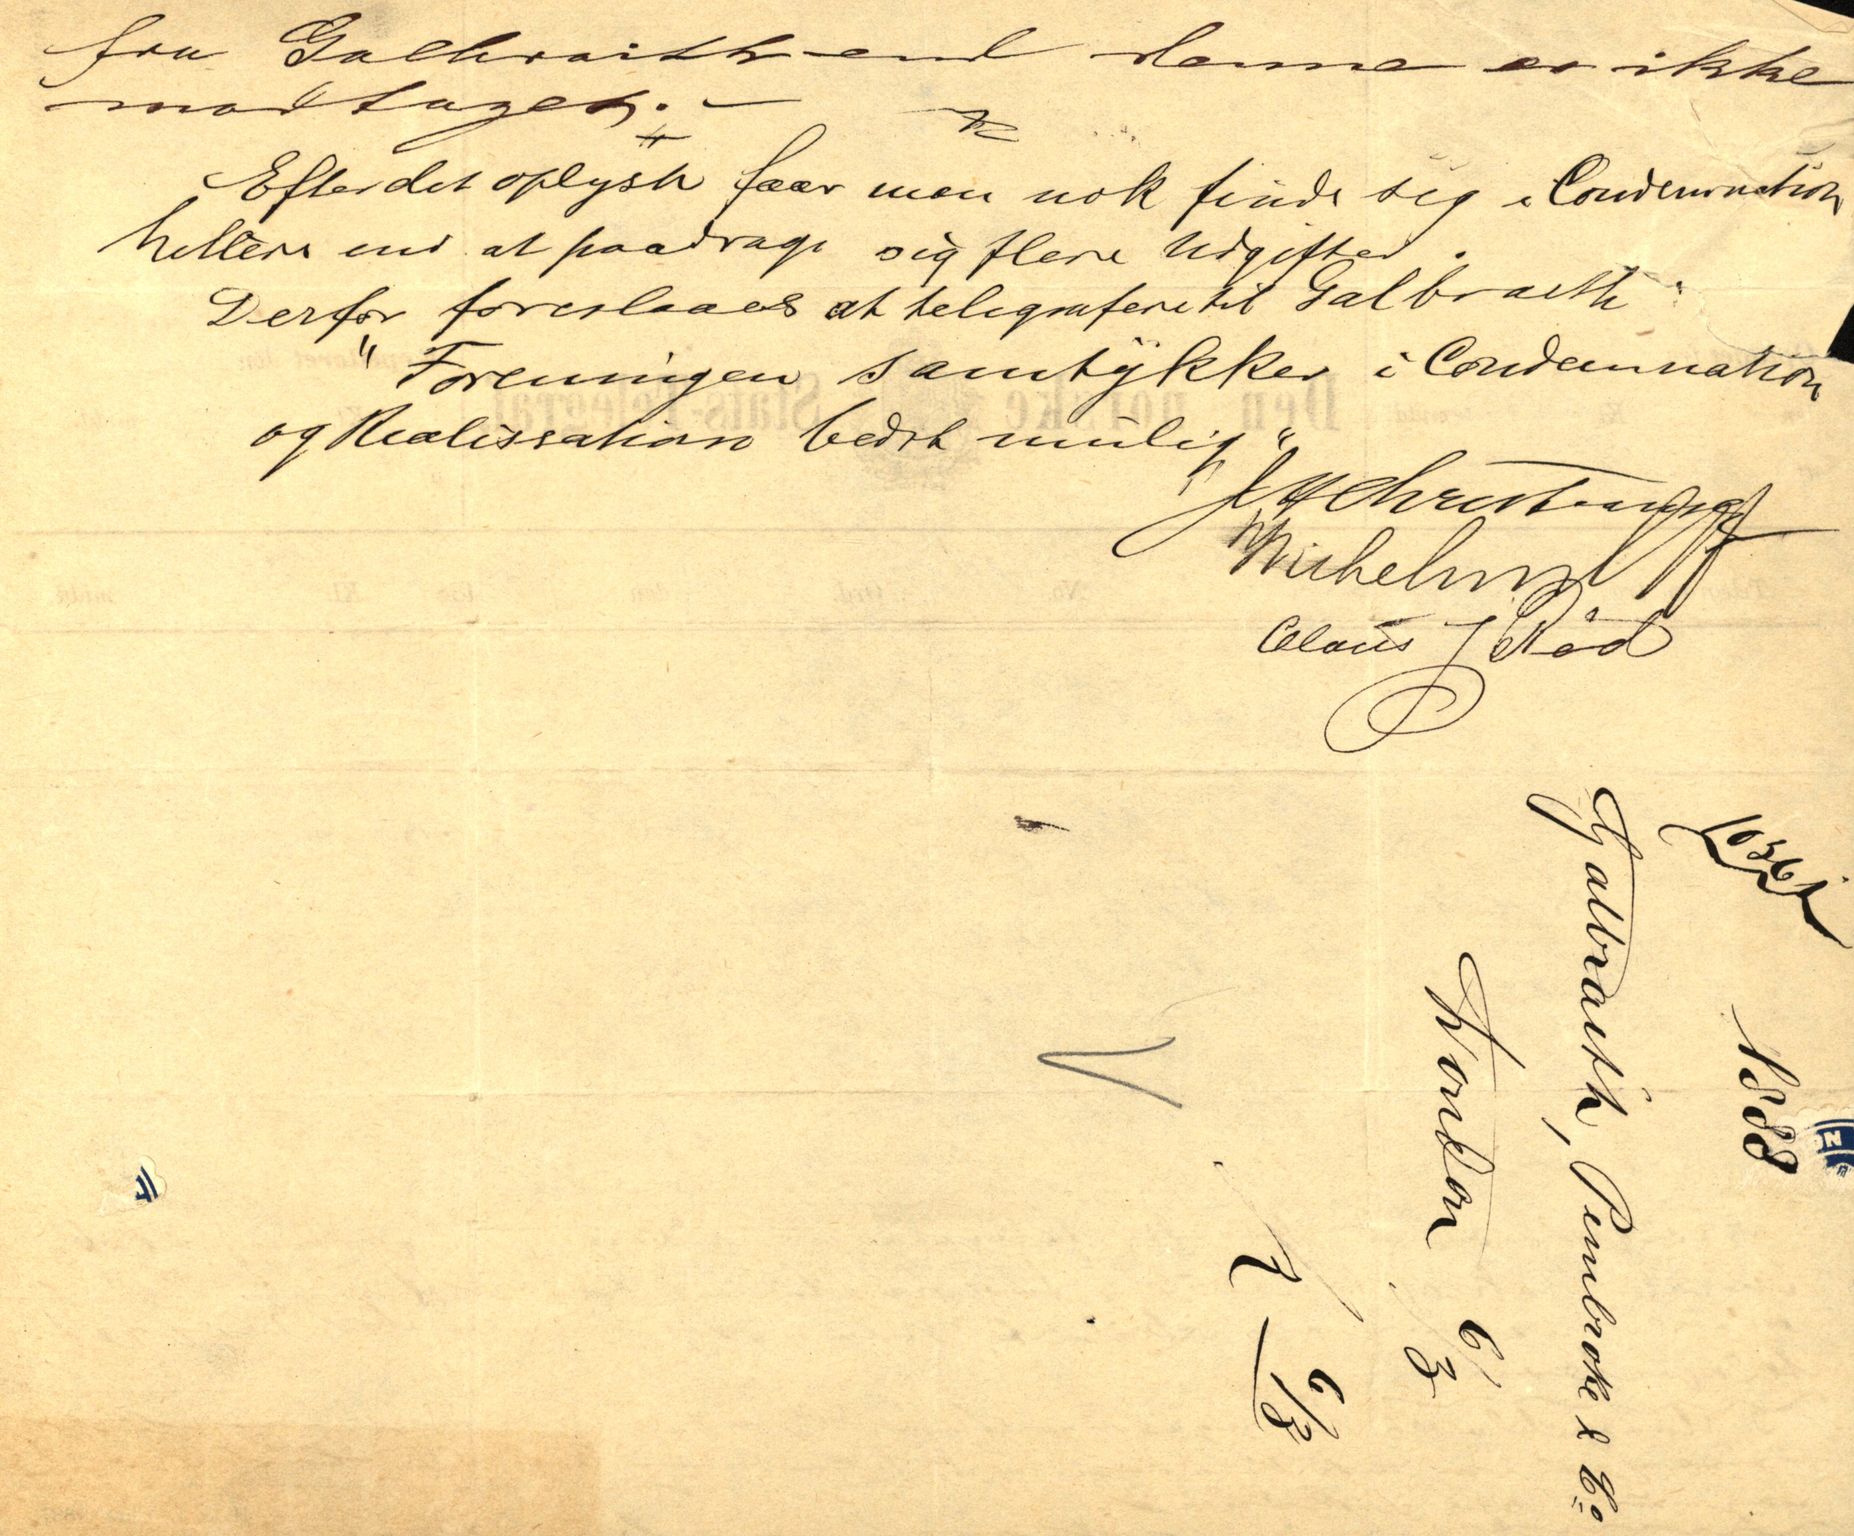 fra Galbraith end denne er ikke
modtaget. —
Efter det oplyste faar man nok finde sig i Condemnation
hellere end at paadrage sig flere Udgifter.
Derfor foreslaaes at telegrafere til Galbraith:
"Foreningen samtykker i Condemnation
og Realissation bedst mulig"
Michelsen
Claus J
1888
Galbraith, Pembroke & Co
London 6/3
6/3
Den norske Stats-Telegraf